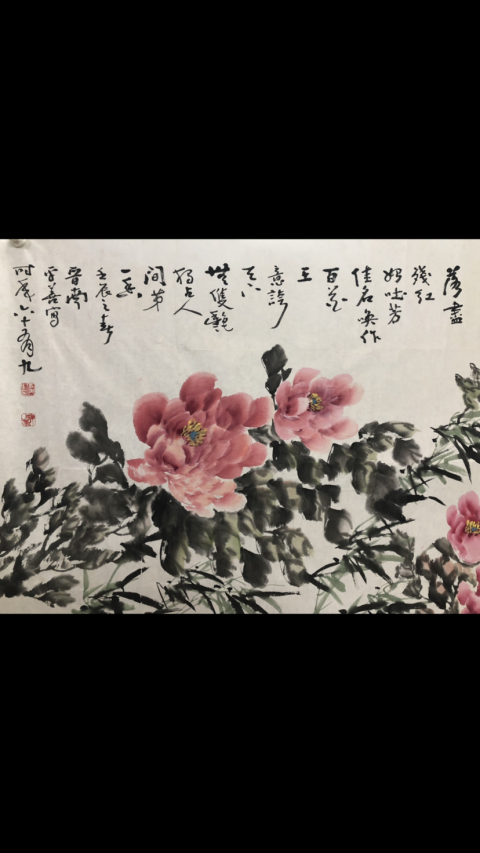 落盡
殘紅
始吐芳
佳名喚作
百花
王
竟誇
天下
無雙艷
獨占人
間第
一香
壬辰之春
晉
寫
时歲六十有九